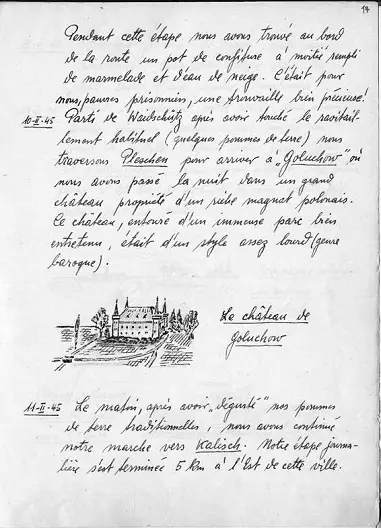 14
Pendant cette étape nous avons trouvé au bord
de la route un pot de confiture à moitié rempli
de marmelade et d'eau de neige. C'était pour
nous, pauvres prisonniers, une trouvaille bien précieuse!
10-II-45 Parti de Waidschütz après avoir touché le ravitail-
lement habituel (quelques pommes de terre) nous
traversons Pleschen pour arriver à "Goluchow" où
nous avons passé la nuit dans un grand
château propriété d'un riche magnat polonais.
Ce château, entouré d'un immense parc bien
entretenu, était d'un style assez lourd (genre
baroque).
Le château de
Goluchow
11-II-45 Le matin, après avoir "dégusté" nos pommes
de terre traditionnelles, nous avons continué
notre marche vers Kalisch. Notre étape journa-
lière s'est terminée 5 km à l'Est de cette ville.